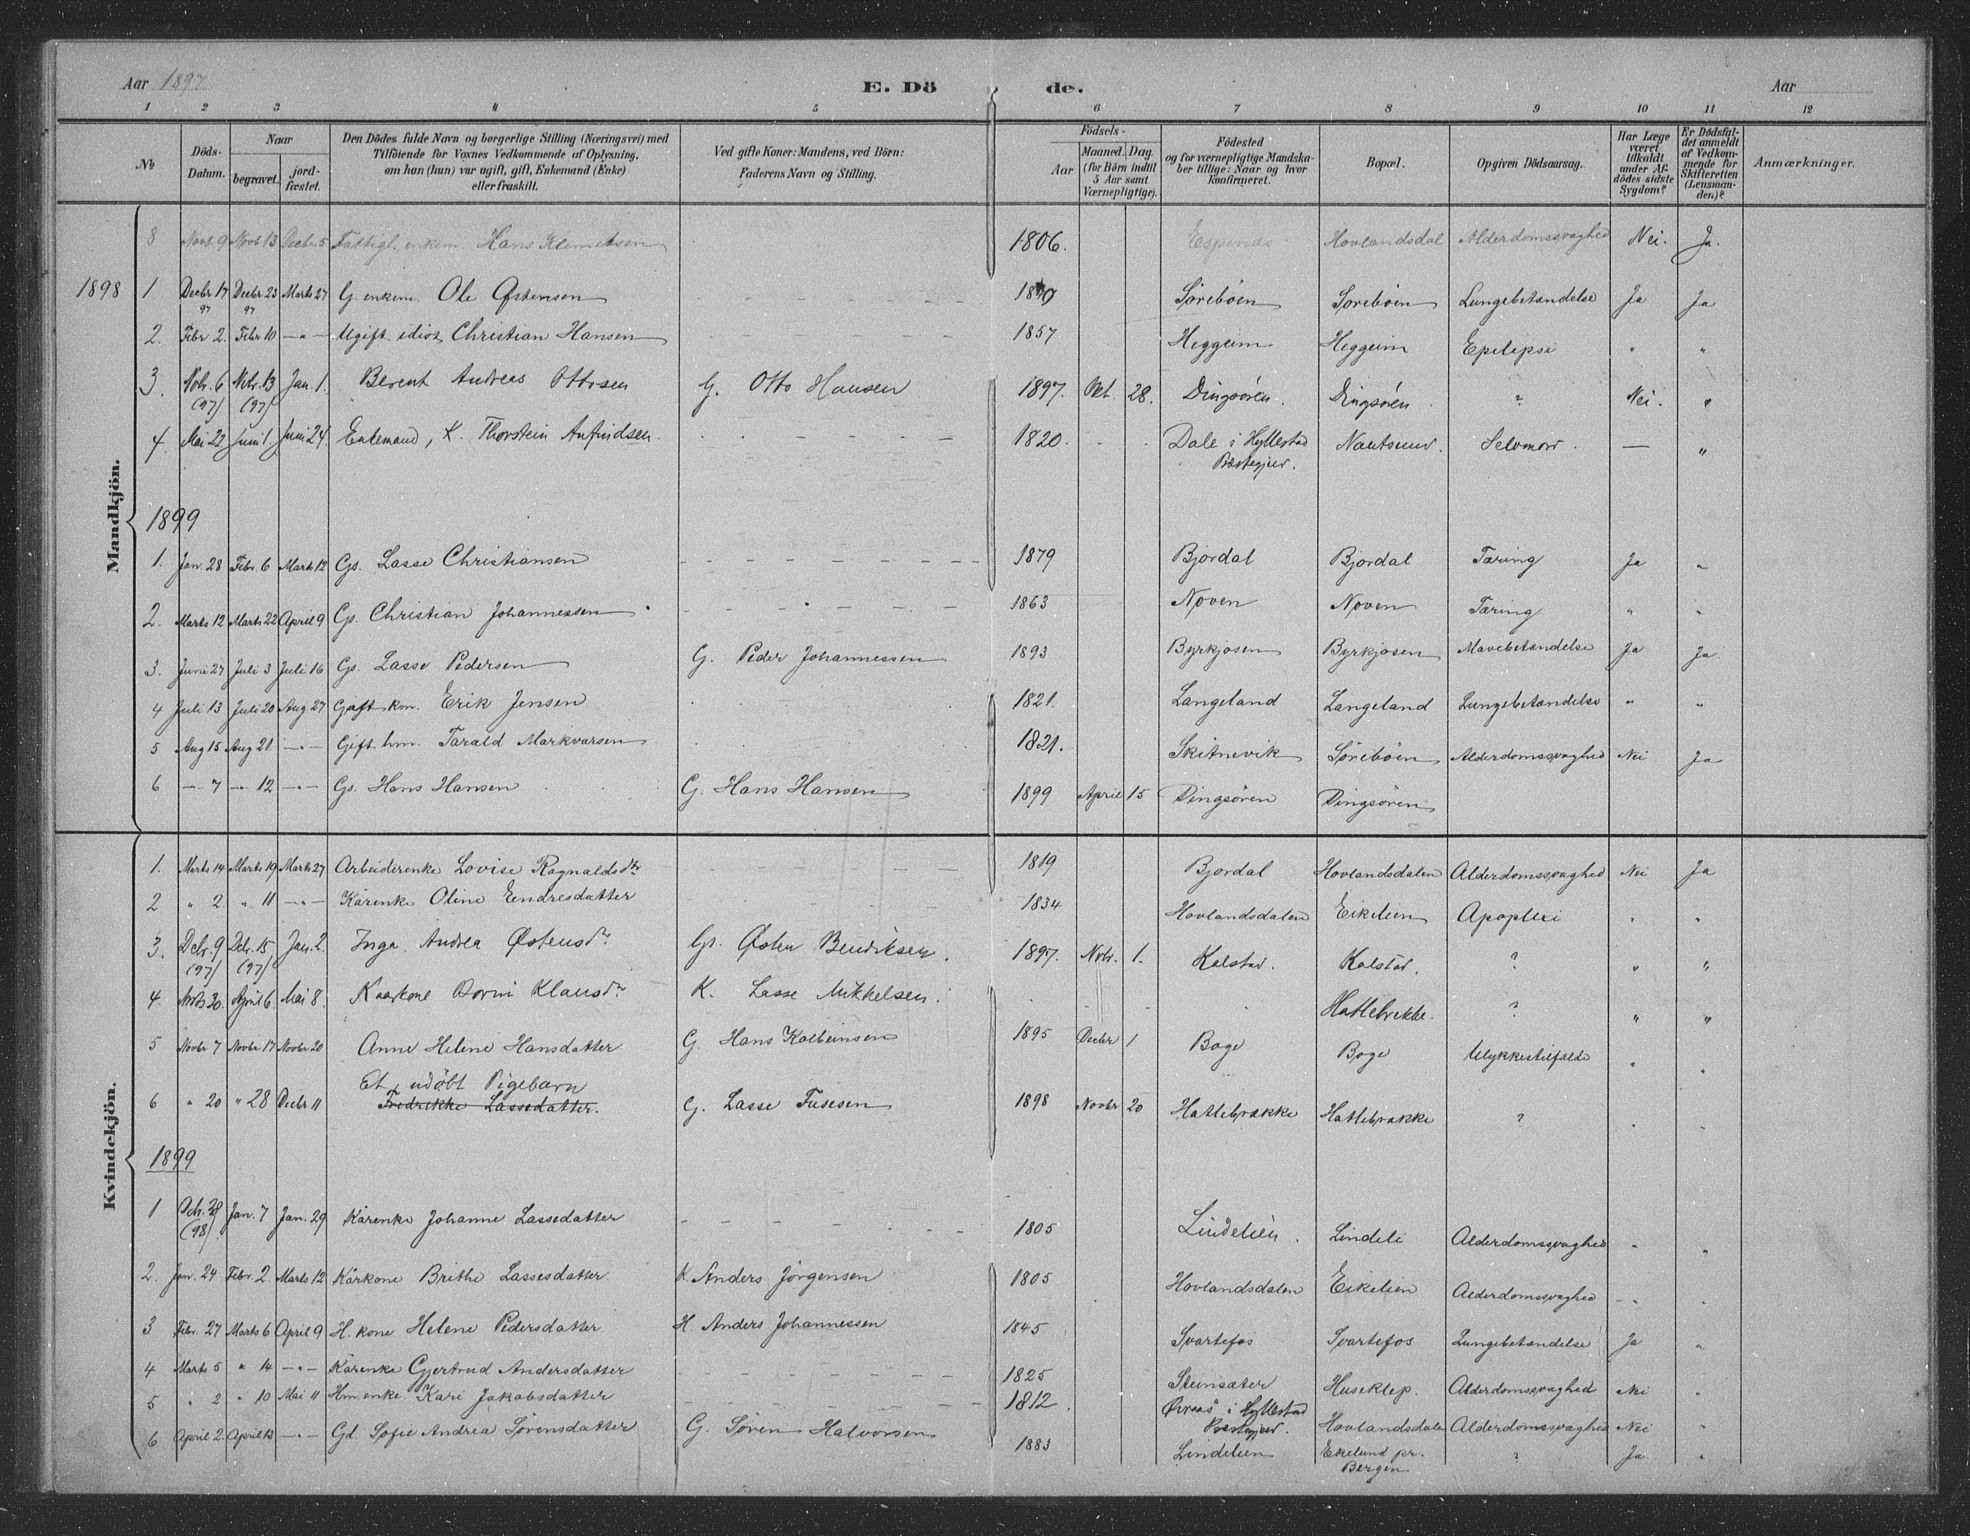 Aar 1897 E. Dö de. Aar
1 2 3 4 5 6 7 8 9 10 11 12
No Döds-Datum. Naar begravet. jord-fæstet. Den Dödes fulde Navn og borgerlige Stilling (Næringsvei) med Tilföiende for Voxnes Vedkommende af Oplysning, om han (hun) var ugift, gift, Enkemand (Enke) eller fraskilt. Ved gifte Koner: Mandens, ved Börn: Faderens Navn og Stilling. Födsels- Aar Maaned. Dag. (for Börn indtil 5 Aar samt Værnepligtige). Födested og for værnepligtige Mandska-ber tillige: Naar og hvor konfirmeret. Bopæl. Opgiven Dödsaarsag. Har Læge været tilkaldt under Af-dödes sidste Sygdom? Er Dödsfal-det anmeldt af Vedkom-mende for Skifteretten (Lensman-den)? Anmærkninger.
Mandkjön.
8 Novb. 9 Novb 13 Decbr. 5 Fattigl. enkem. Hans Klemetsen 1806. Espenes Hovlandsdal Alderdomssvaghed Nei. Ja.
1898 1 Decbr 17 97 Decbr. 23 97 Marts 27 G. enkem. Ole Østensen Söreböen Soreböen Lungebetændelse Ja Ja
2. Febr 2. Febr 10 —"— Ugift idiot Christian Hansen 1857 Heggeim Heggeim Epilepsi " "
3. Nobr. 6 (97) Nobr. 13 (97) Jan. 1. Berent Andreas Ottosen G. Otto Hansen 1897. Okt. 28. Dingsören. Dingsören. ? Nei. "
4 Mai 22 Juni 1. Juni 24. Enkemand, K. Thorstein Anfindsen. 1820. Dale i Hyllestad Præstegjed. Nautsund. Selvmord. — "
1899
1. Jan. 28 Febr. 6 Marts 12 Gs. Lasse Christiansen 1879 Bjordal Bjordal Tæring Ja "
2. Marts 12 Marts 22 April 9 Gs. Christian Johannessen 1863 Noven Noven Tæring " "
3. Juni 27 Juli 3 Juli 16 Gs. Lasse Pedersen G. Peder Johannessen 1893 Byrkjosen Byrkjosen Mavebetændelse Ja Ja
4 Juli 13 Juli 20 Aug 27 Gaft. km. Erik Jensen 1821. Langeland Langeland Lungebetændelse " "
5 Aug 15 Aug 21. —"— Gift. hm. Tarald Markvarsen 1821. Skitnevik Söreböen Alderdomssvaghed Nei Ja
6 —"— 7 —"— 12 —"— Gs. Hans Hansen G. Hans Hansen 1899 April 15 Dingsören Dingsören
Kvindekjön.
1. Marts 14 Marts 19 Marts 27 Arbeiderenke Lovise Ragnaldsdtr 1819 Bjordal Hovlandsdalen Alderdomssvaghed Nei Ja
2 " 2 " 11 —"— Kårenke Oline Eendresdatter 1834 Hovlandsdalen Eikelien Apoplexi " "
3. Debr. 9 (97) Debr. 15 (97) Jan. 2. Inga Andrea Østensdr Gs. Østen Bendiksen. 1897. Nobr. 1. Kalstad. Kalstad. ? " "
4. Marts 30. April 6 Mai 8. Kaarkone Dorni Klausdr K. Lasse Mikkelsen. Hatlebrekke. ? " "
5 Novbr 7 Novbr 17 Novbr 20 Anne Helene Hansdatter G. Hans Kolbeinsen 1895 Decbr 1 Boge Boge Ulykkestilfælde
Et udöbt Pigebarn
6 " 20 " 28 Decbr 11 Fredrikke Lassedatter. G. Lasse Fusesen 1898 Novbr 20 Hatlebrække Hatlebrække ?
1899
1 (98) Jan. 7 Jan. 29 Kårenke Johanne Lassedatter 1805 Lindelien. Lindeli Alderdomssvaghed " "
2. Jan. 24 Febr. 2 Marts 12 Kårkone Brithe Lassesdatter. K. Anders Jörgensen 1805 Hovlandsdalen Eikelien Alderdomssvaghed —"—
3 Febr. 27 Marts 6 April 9 H. kone Helene Pedersdatter. H. Anders Johannessen 1845 Svartefos Svartefos Lungebetændelse Ja "
4 Marts 5 " 14 —"— Kårenke Gjertrud Andersdatter 1825 Steinsæter Huseklep. Alderdomssvaghed Nei "
5 " 2 " 10 Mai 11 Hm. enke Kari Jakobsdatter 1812. i Hyllestad Præstegjed. Hovlandsdalen Alderdomssvaghed Nei "
6 April 2. April 13 —"— Gd. Sofie Andrea Sörensdatter G. Sören Halvorsen 1883 Lindelien Ekelund pr. Bergen ? Ja "